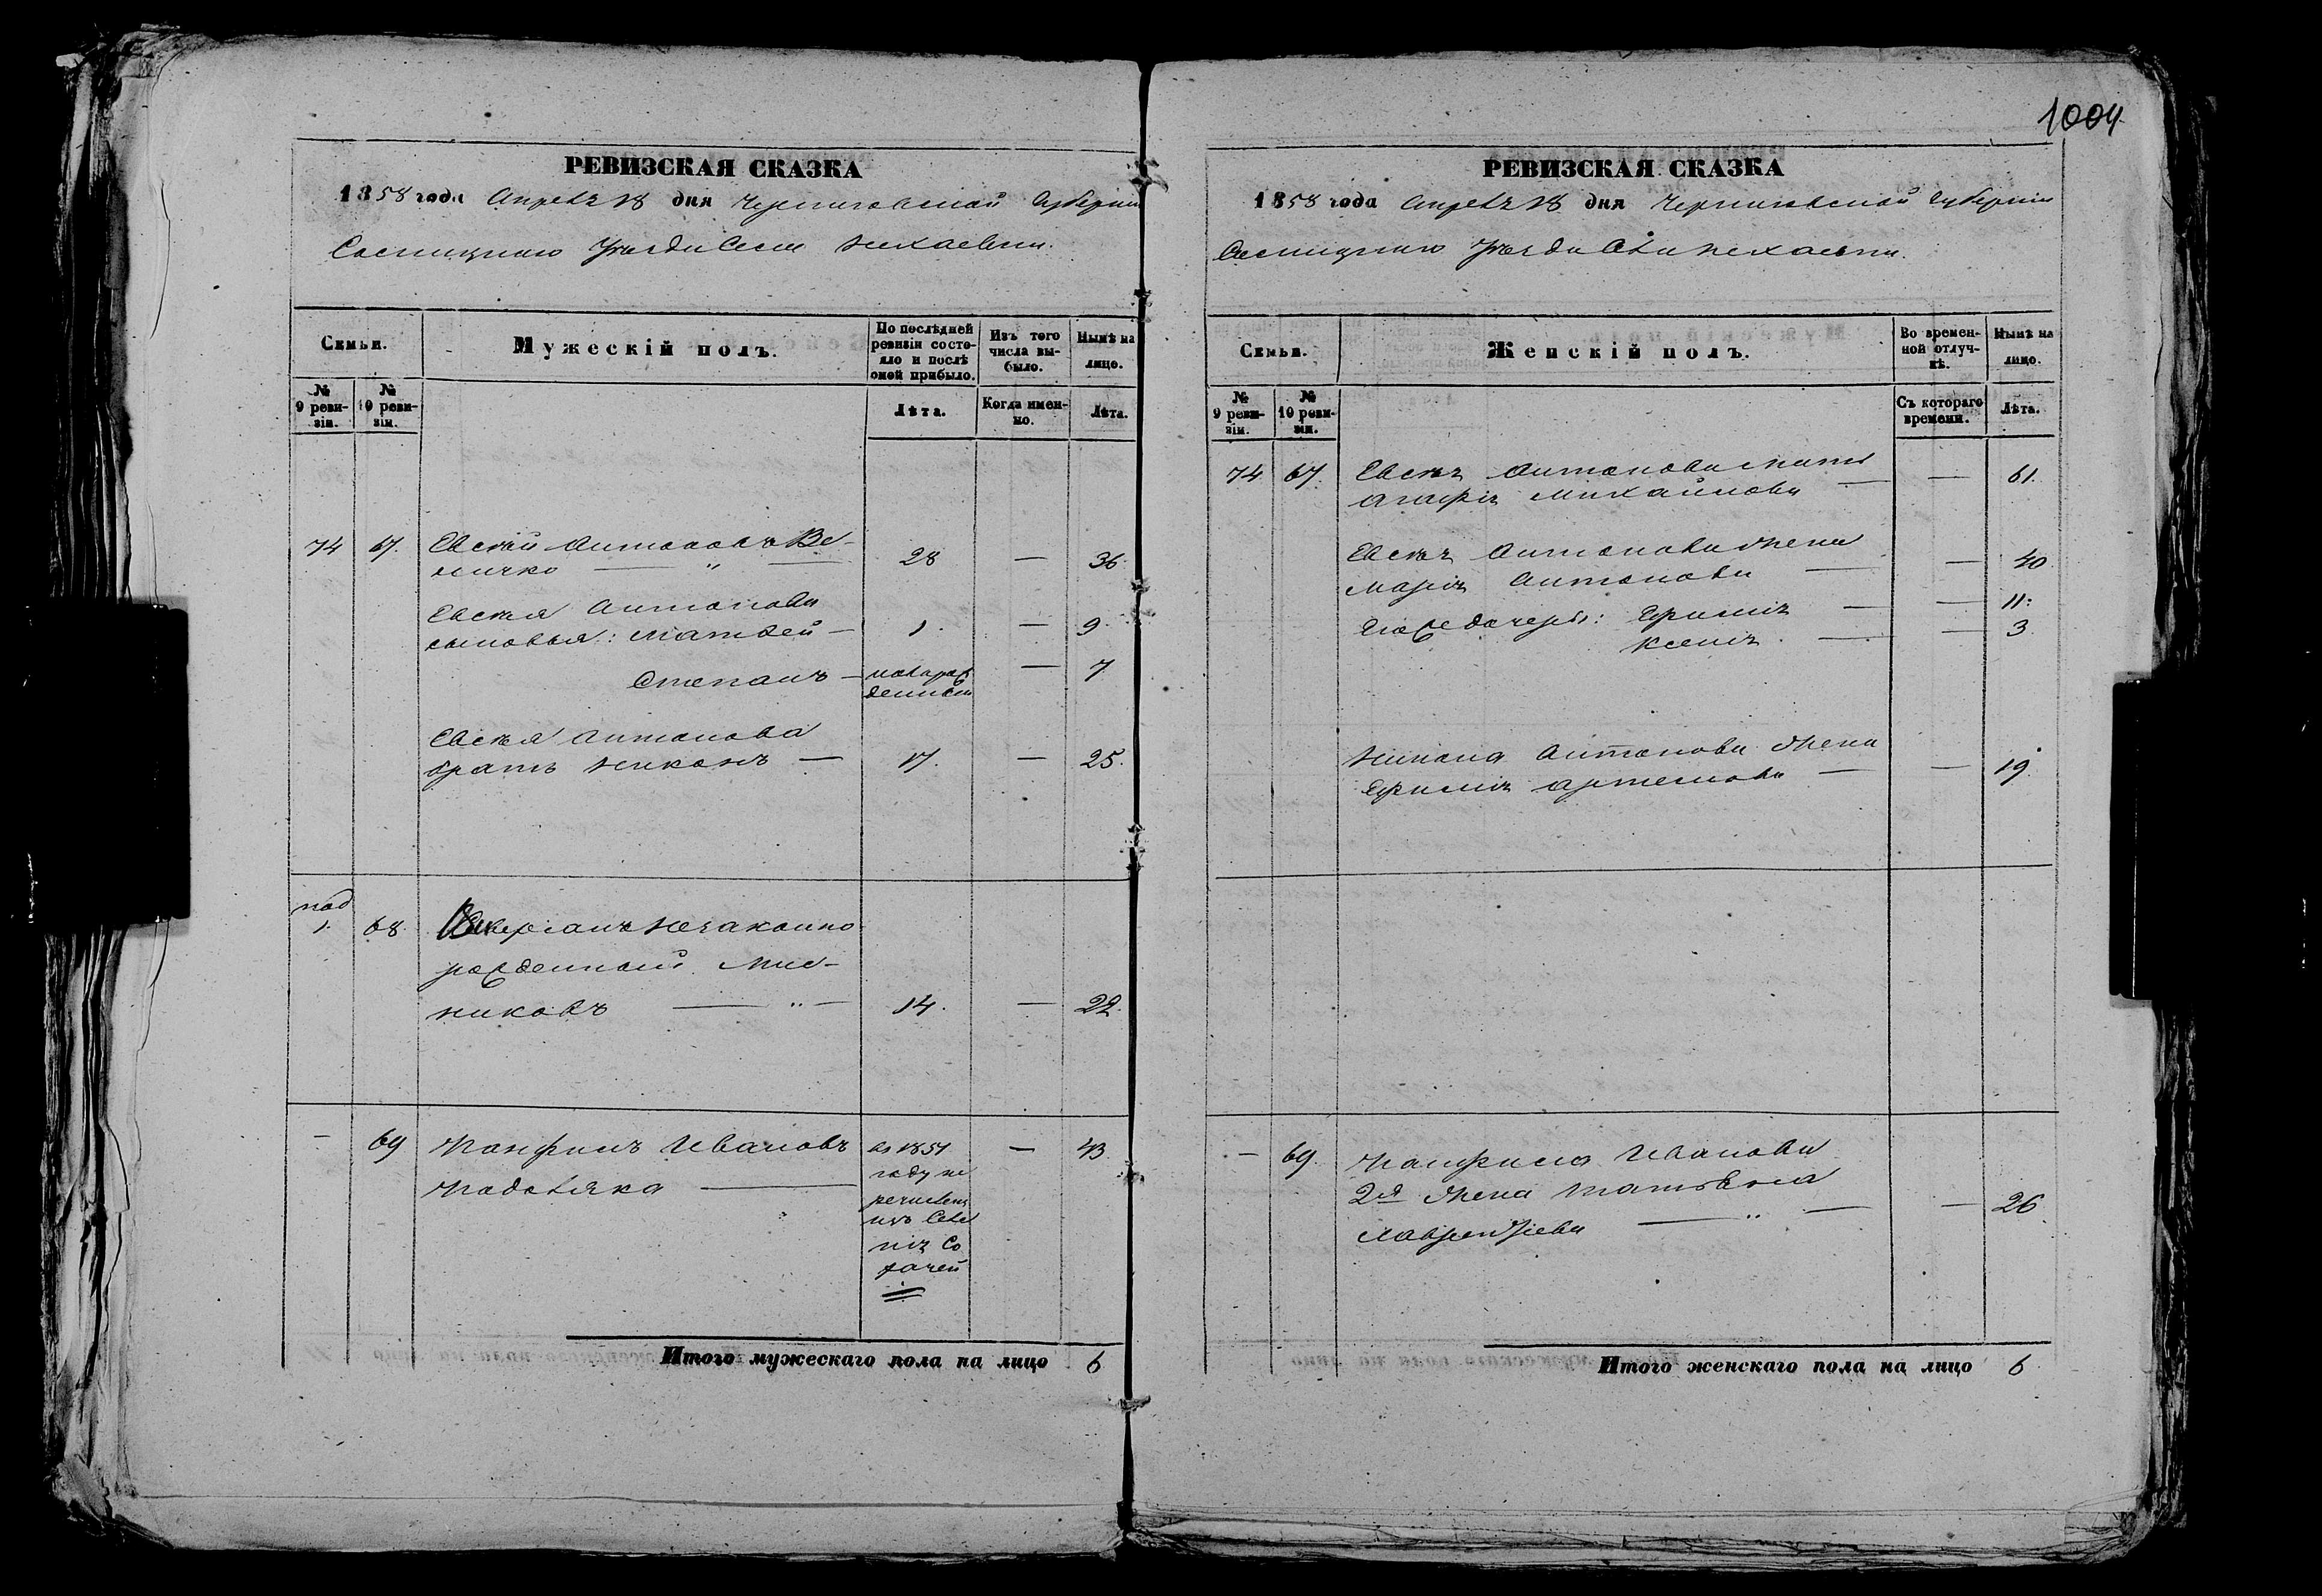 1004
РЕВИЗСКАЯ СКАЗКА
1858 года Апреля 18 дня Черниговской Губернии
Сосницкого Уезда Села Нехаевки.
Семьи.
Мужескій полъ.
По послѣдней ревизіи состояло и послѣ оной прибыло.
Изъ того числа выбыло.
Нынѣ на лицо.
№ 9 ревизіи.
№ 10 ревизіи.
Лѣта.
Когда именно.
Лѣта.
74 67. Евсей Антоновъ Ве-
личко — " — 28 — 36
Евсея Антонова
сыновья: Матвей — 1 — 9
Степанъ — новорож
денный — 7
Евсея Антонова
братъ Никонъ — 17. — 25.
под
1. 68. незаконно
рожденный
14. — 22.
— 69 Панфилъ Ивановъ въ 1851 — 43.
году пе
речислен
изъ Селе
нія
Итого мужескаго пола на лицо 6
РЕВИЗСКАЯ СКАЗКА
1858 года Апреля 18 дня Черниговской Губерніи
Сосницкого Уезда Села Нехаевки.
Семьи.
Женскій полъ.
Во временной отлучкѣ.
Нынѣ на лицо.
№ 9 ревизіи.
№ 10 ревизіи.
Съ котораго времени.
Лѣта.
74 67. Евсея Антонова мать
Агафія Михайлова — — 61.
Евсея Антонова жена
Марія Антонова — — 40
Его же дочери: Ефимія — — 11.
Ксенія. — — 3.
Никона Антонова жена
Ефимія Артемова — — 19.
— 69. Панфила Иванова
2я жена Татьяна
Лаврентіева — " — — 26.
Итого женскаго пола на лицо 6